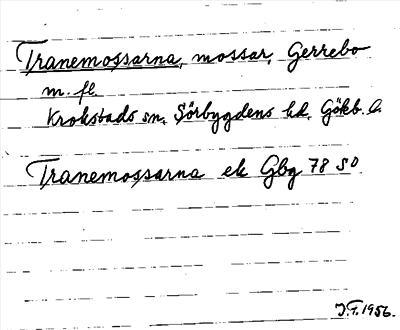 Tranemossarna, mossar, Gerrebo
m. fl.
Krokstads sn. Sörbygdens hd. Gökb. l.
Tranemossarna ek Gbg 78 SO
J.F. 1956.